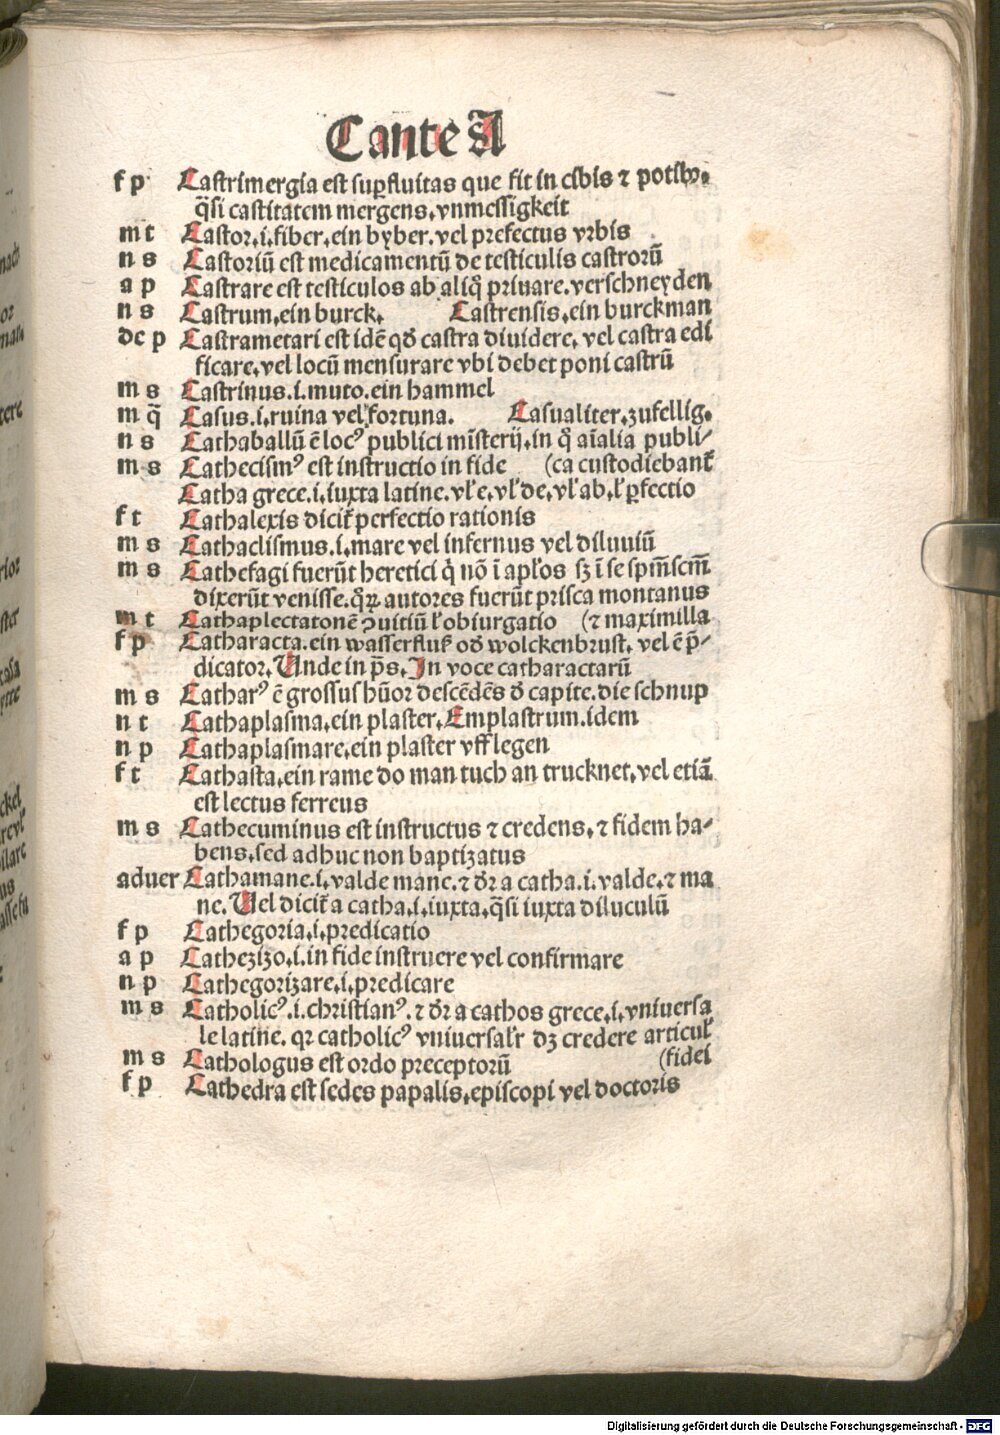 C ante A
f p Castrimergia est suꝑfluitas que fit in cibis ⁊ potibꝰ.
q̄si castitatem mergens.vnmessigkeit
m t Castor.i.fiber.ein byber.vel prefectus vrbis
n s Castoriū est medicamentū de testiculis castrorū
a p Castrare est testiculos ab aliq̄ priuare.verschneyden
n s Castrum.ein burck. Castrensis.ein burckman
de p Castrametari est idē qđ castra diuidere. vel castra edi
ficare.vel locū mensurare vbi debet poni castrū
m s Castrinus.i.muto.ein hammel
m q̄ Casus.i.ruina vel fortuna. Casualiter.zufellig.
n s Cathaballū ē locꝰ publici misterij.in q̄ aialia publi/
m s Cathecismꝰ est instructio in fide (ca custodiebant̄
Catha grece.i.iuxta latine.vl̄ e.vl̄ de.vl̄ ab.l̄ ꝑfectio
f t Cathalexis dicit̄ perfectio rationis
m s Cathaclismus.i.mare vel infernus vel diluuiū
m s Cathefagi fuerūt heretici q̄ nō ī apl̄os sꝫ ī se spm̄scm̄
dixerūt venisse.qꝝ autores fuerūt prisca montanus
m t Cathaplectatonē ꝯuitiū l̄ obiurgatio (⁊ maximilla
f p Catharacta.ein wasserfluß oď wolckenbrust. vel ē p̄/
dicator.Unde in p̄s.In voce catharactarū
m s Catharꝰ ē grossus hūor descēdēs đ capite.die schnup
n t Cathaplasma.ein plaster.Emplastrum.idem
n p Cathaplasmare.ein plaster vff legen
f t Cathasta.ein rame do man tuch an trucknet.vel etiā
est lectus ferreus
m s Cathecuminus est instructus ⁊ credens.⁊ fidem ha/
bens.sed adhuc non baptizatus
aduer Cathamane.i.valde mane.⁊ dꝛ a catha.i.valde.⁊ ma
ne.Uel dicit̄ a catha.i.iuxta.q̄si iuxta diluculū
f p Cathegoria.i.predicatio
a p Cathezizo.i.in fide instruere vel confirmare
n p Cathegorizare.i.predicare
m s Catholicꝰ.i.christianꝰ.⁊ dꝛ a cathos grece.i.vniuersa
le latine. qꝛ catholicꝰ vniuersalr̄ dꝫ credere articul̄
m s Cathologus est ordo preceptorū (fidei
f p Cathedra est sedes papalis.episcopi vel doctoris
Digitalisierung gefördert durch die Deutsche Forschungsgemeinschaft - DFG